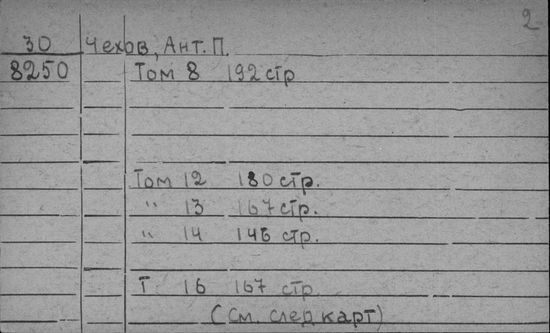 2
30 Чехов, Ант. П.
8250 Том 8 192 стр
Том 12 180 стр.
" 13 167 стр.
" 14 146 стр.
Т 16 167 стр.
(См. след карт)